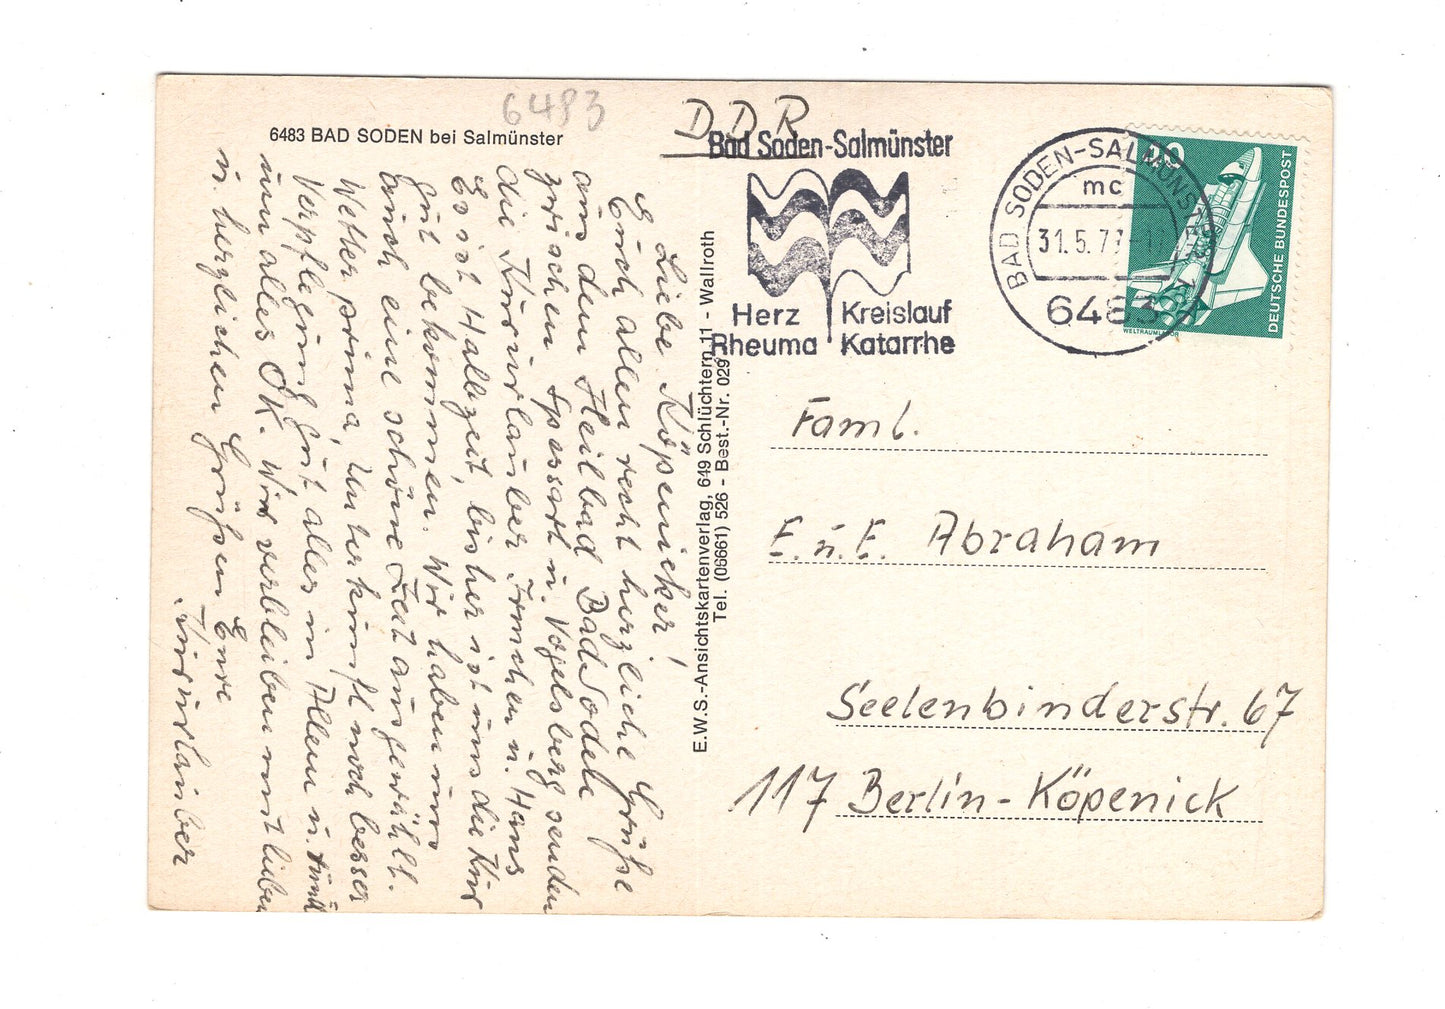 6483
6483 BAD SODEN bei Salmünster
DDR
Bad Soden-Salmünster
Herz Kreislauf
Rheuma Katarrhe
BAD SODEN-SALMÜNSTER 1
mc
31.5.7
6483
30
DEUTSCHE BUNDESPOST
E.W.S.-Ansichtskartenverlag, 649 Schlüchtern 11 - Wallroth
Tel. (06661) 526 - Best.-Nr. 029
Liebe Köpenicker!
Euch allen recht herzliche Grüße
aus dem Heilbad Bad Soden
zwischen Spessart u. Vogelsberg senden
die Kururlauber Irmchen u. Hans
Es ist Halbzeit, bisher ist uns die Kur
gut bekommen. Wir haben uns
auch eine schöne Zeit ausgewählt.
Wetter prima, Unterkunft noch besser
Verpflegung gut alles in Allem u.
um alles OK. Wir verbleiben mit lieben
u. herzlichen Grüßen Eure
Kururlauber
Faml.
E. u. E. Abraham
Seelenbinderstr. 67
117 Berlin-Köpenick